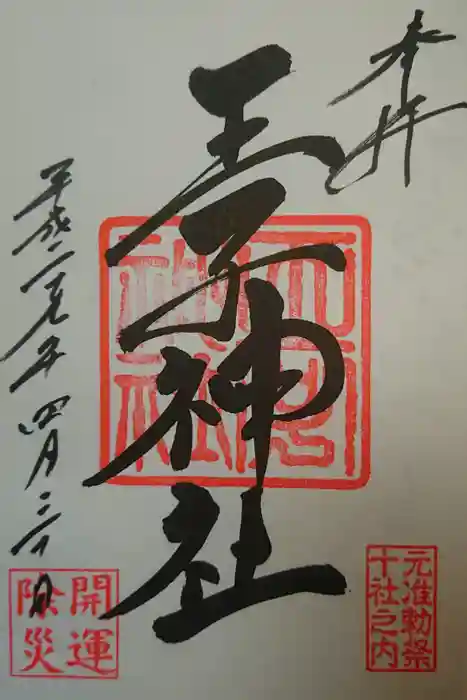 奉拝
王子神社
平成二十九年四月三十日
王子神社
元准勅祭
十社之内
開運
除災